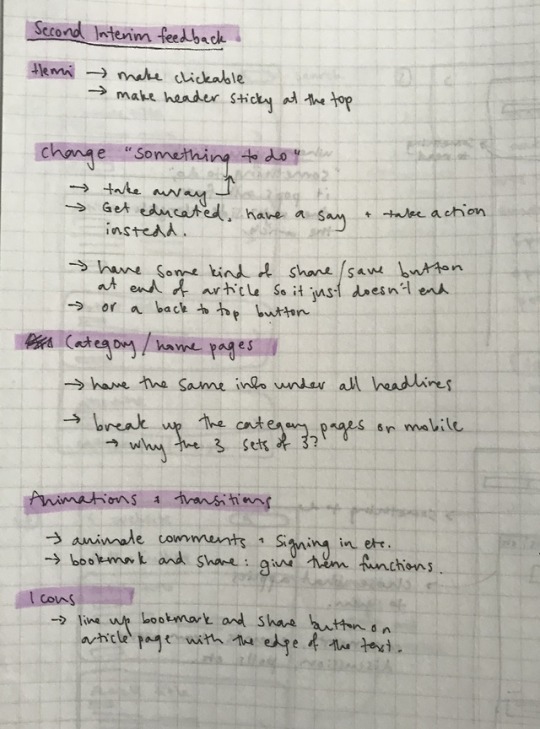 Second Interim feedback
Hemi → make clickable
→ make header sticky at the top
change "something to do"
→ take away
→ Get educated, have a say + take action
instead.
→ have some kind of share/save button
at end of article so it just doesn't end
→ or a back to top button
Category/home pages
→ have the same info under all headlines
→ break up the category pages on mobile
→ why the 3 sets of 3?
Animations + transitions
→ animate comments + signing in etc.
→ bookmark and share: give them functions.
Icons
→ line up bookmark and share button on
article page with the edge of the text.